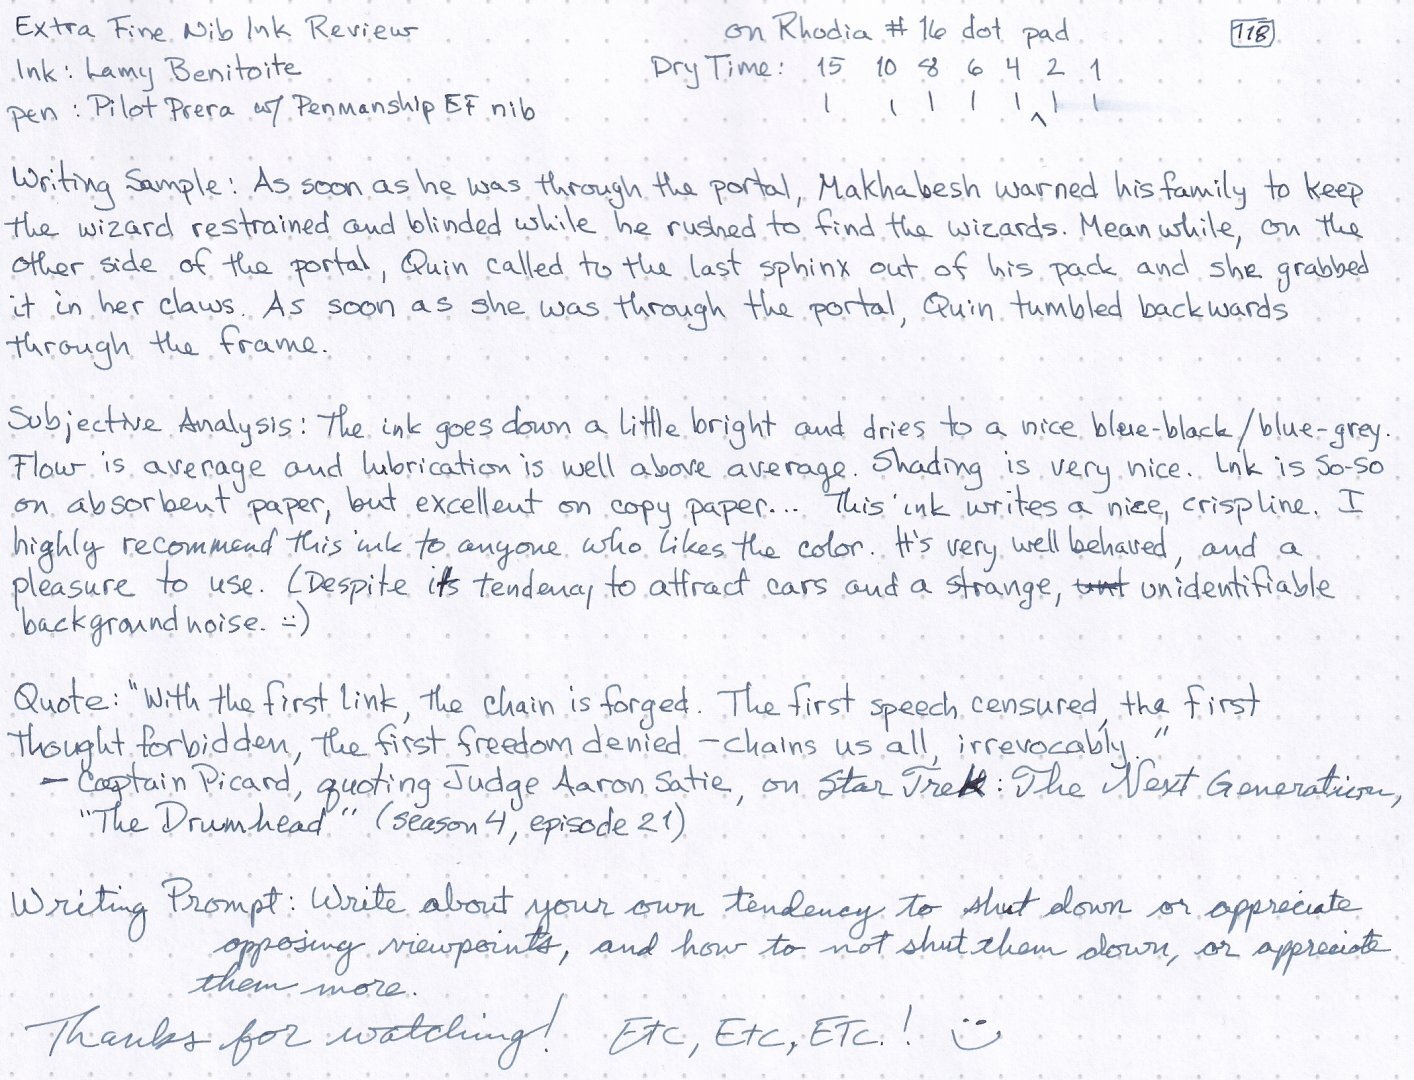 Extra Fine Nib Ink Review on Rhodia #16 dot pad 118
Ink: Lamy Benitoite Dry Time: 15 10 8 6 4 2 1
pen: Pilot Prera w/ Penmanship EF nib
Writing Sample: As soon as he was through the portal, Makhabesh warned his family to keep
the wizard restrained and blinded while he rushed to find the wizards. Meanwhile, on the
other side of the portal, Quin called to the last sphinx out of his pack and she grabbed
it in her claws. As soon as she was through the portal, Quin tumbled backwards
through the frame.
Subjective Analysis: The ink goes down a little bright and dries to a nice blue-black/blue-grey.
Flow is average and lubrication is well above average. Shading is very nice. Ink is so-so
on absorbent paper, but excellent on copy paper... This ink writes a nice, crisp line. I
highly recommend this ink to anyone who likes the color. It's very well behaved, and a
pleasure to use. (Despite its tendency to attract cars and a strange, unt unidentifiable
background noise. :-)
Quote: "With the first link, the chain is forged. The first speech censured, the first
thought forbidden, the first freedom denied - chains us all, irrevocably."
- Captain Picard, quoting Judge Aaron Satie, on Star Trek: The Next Generation,
"The Drumhead" (season 4, episode 21)
Writing Prompt: Write about your own tendency to shut down or appreciate
opposing viewpoints, and how to not shut them down, or appreciate
them more.
Thanks for watching! Etc, Etc, ETc.!